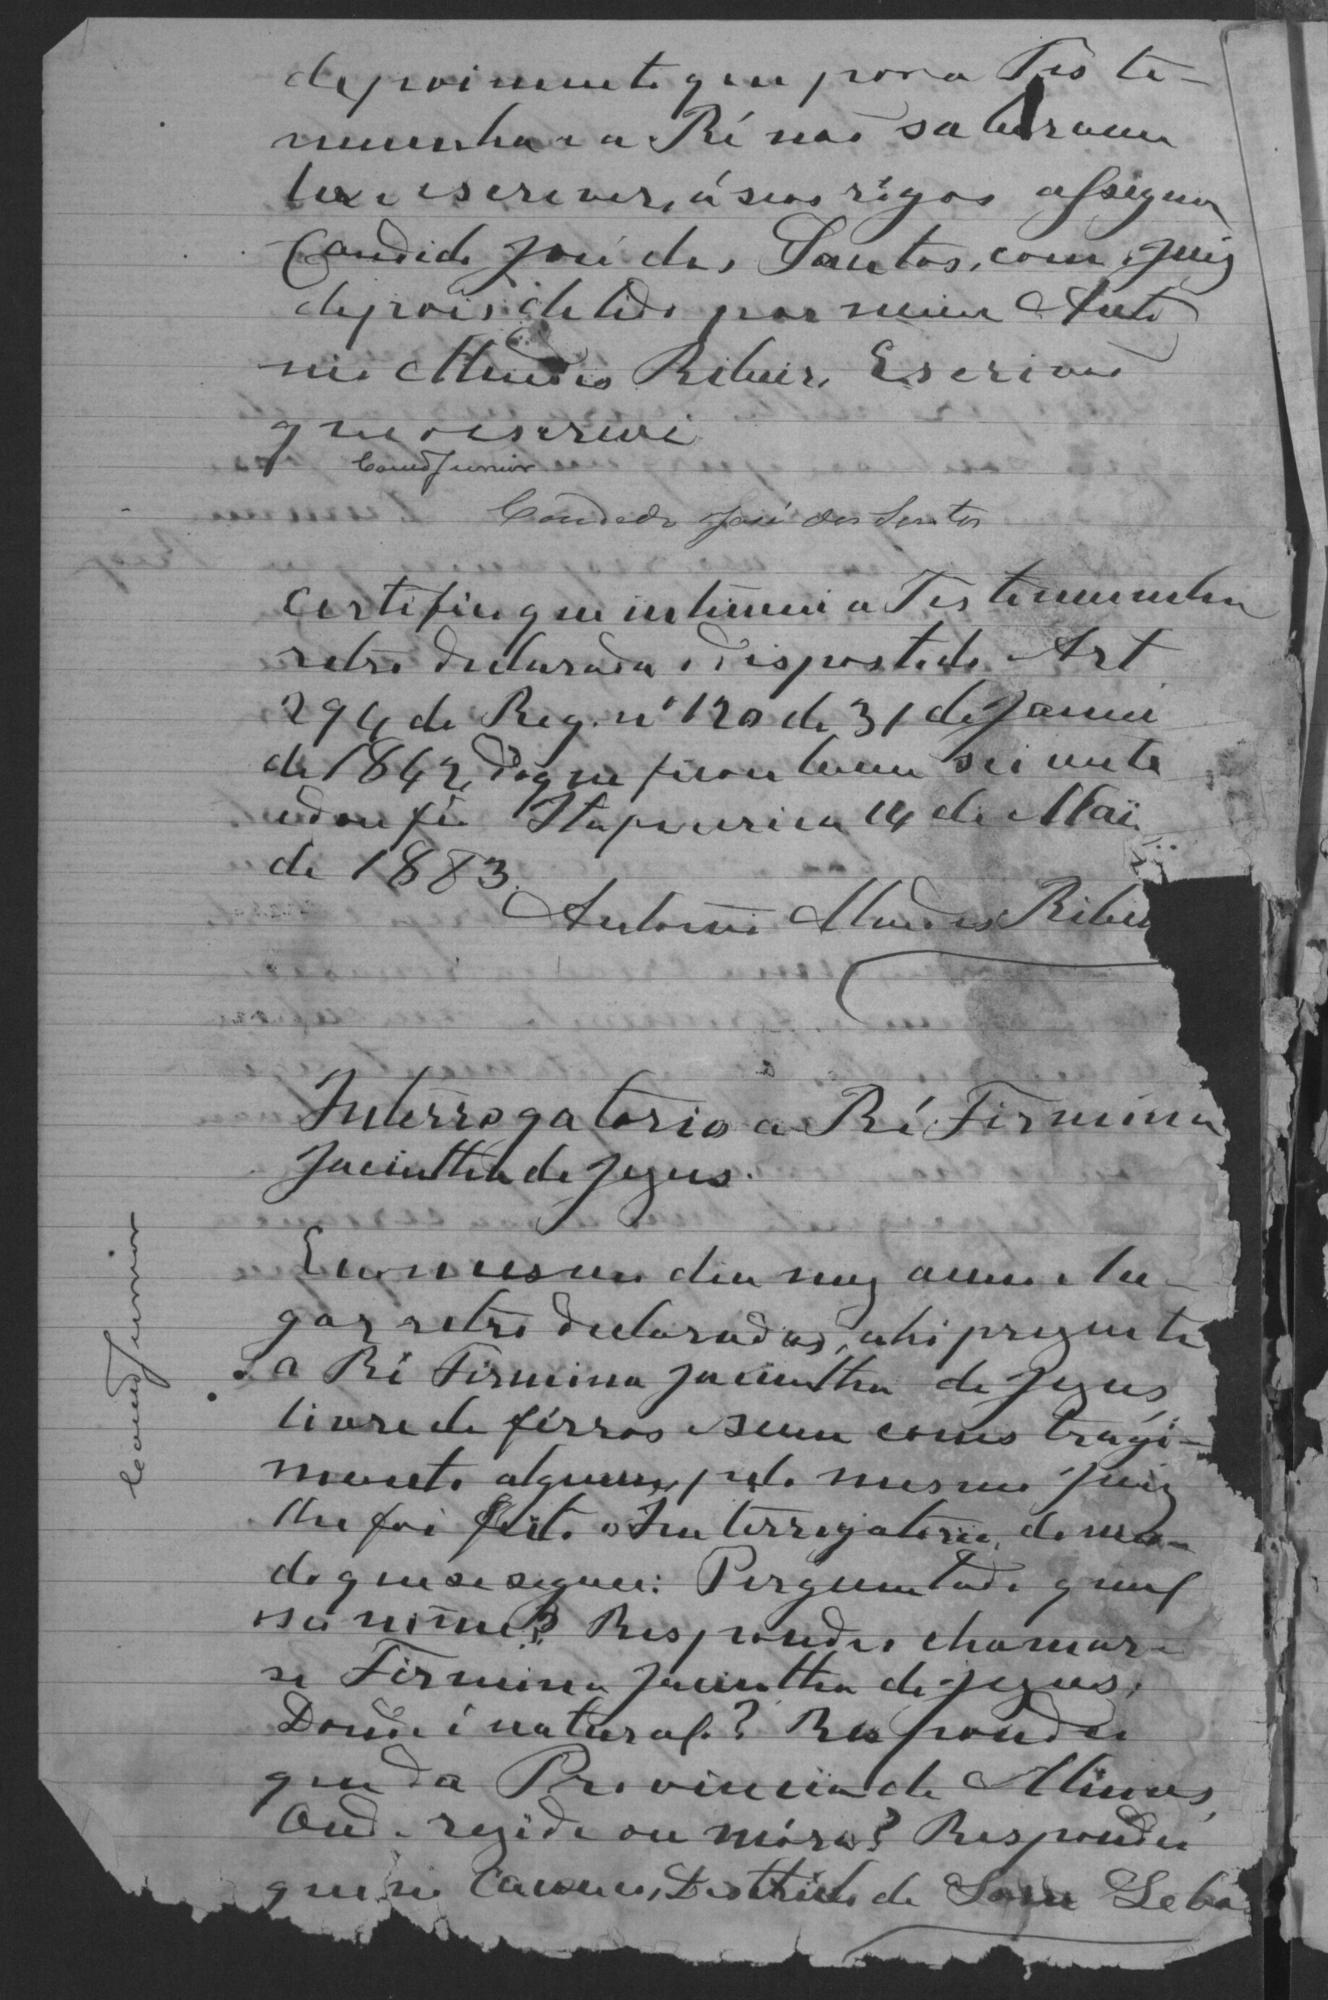 depoimento que por a Teste-
munha e a Ré não saberem
ler e escrever, á seos rôgos assigna
Candido José dos Santos, com o Juiz
depois de lido por mim Anto
nio Mendes Ribeiro Escrivão
que o escrevi
Candido José dos Santos
Certifico que intimei a Testemunha
retro declarada o disposto do Art
294 do Reg. nº 120 de 31 de Janeiro
de 1842, do que ficou bem sciente
e dou fé Itapecerica 14 de Maio
de 1883.
Antonio Mendes Ribei
Interrogatorio á Ré Firmina
Jacintha de Jezus.
Em o mesmo dia mez anno e lu-
gar retro declarados, ahi prezente
a Ré Firmina Jacintha de Jezus,
livre de ferros e sem constrãgi-
mento algum, pelo mesmo Juiz
lhe foi feito o Interrogatorio, do mo-
do que se segue: Perguntado qual
o seu nome? Respondeo chamar-
se Firmina Jacintha de Jezus.
Donde é natural? Respondeo
que da Provincia de Minas,
Onde rezide ou móra? Respondeo
que no Districto de Sam Seba